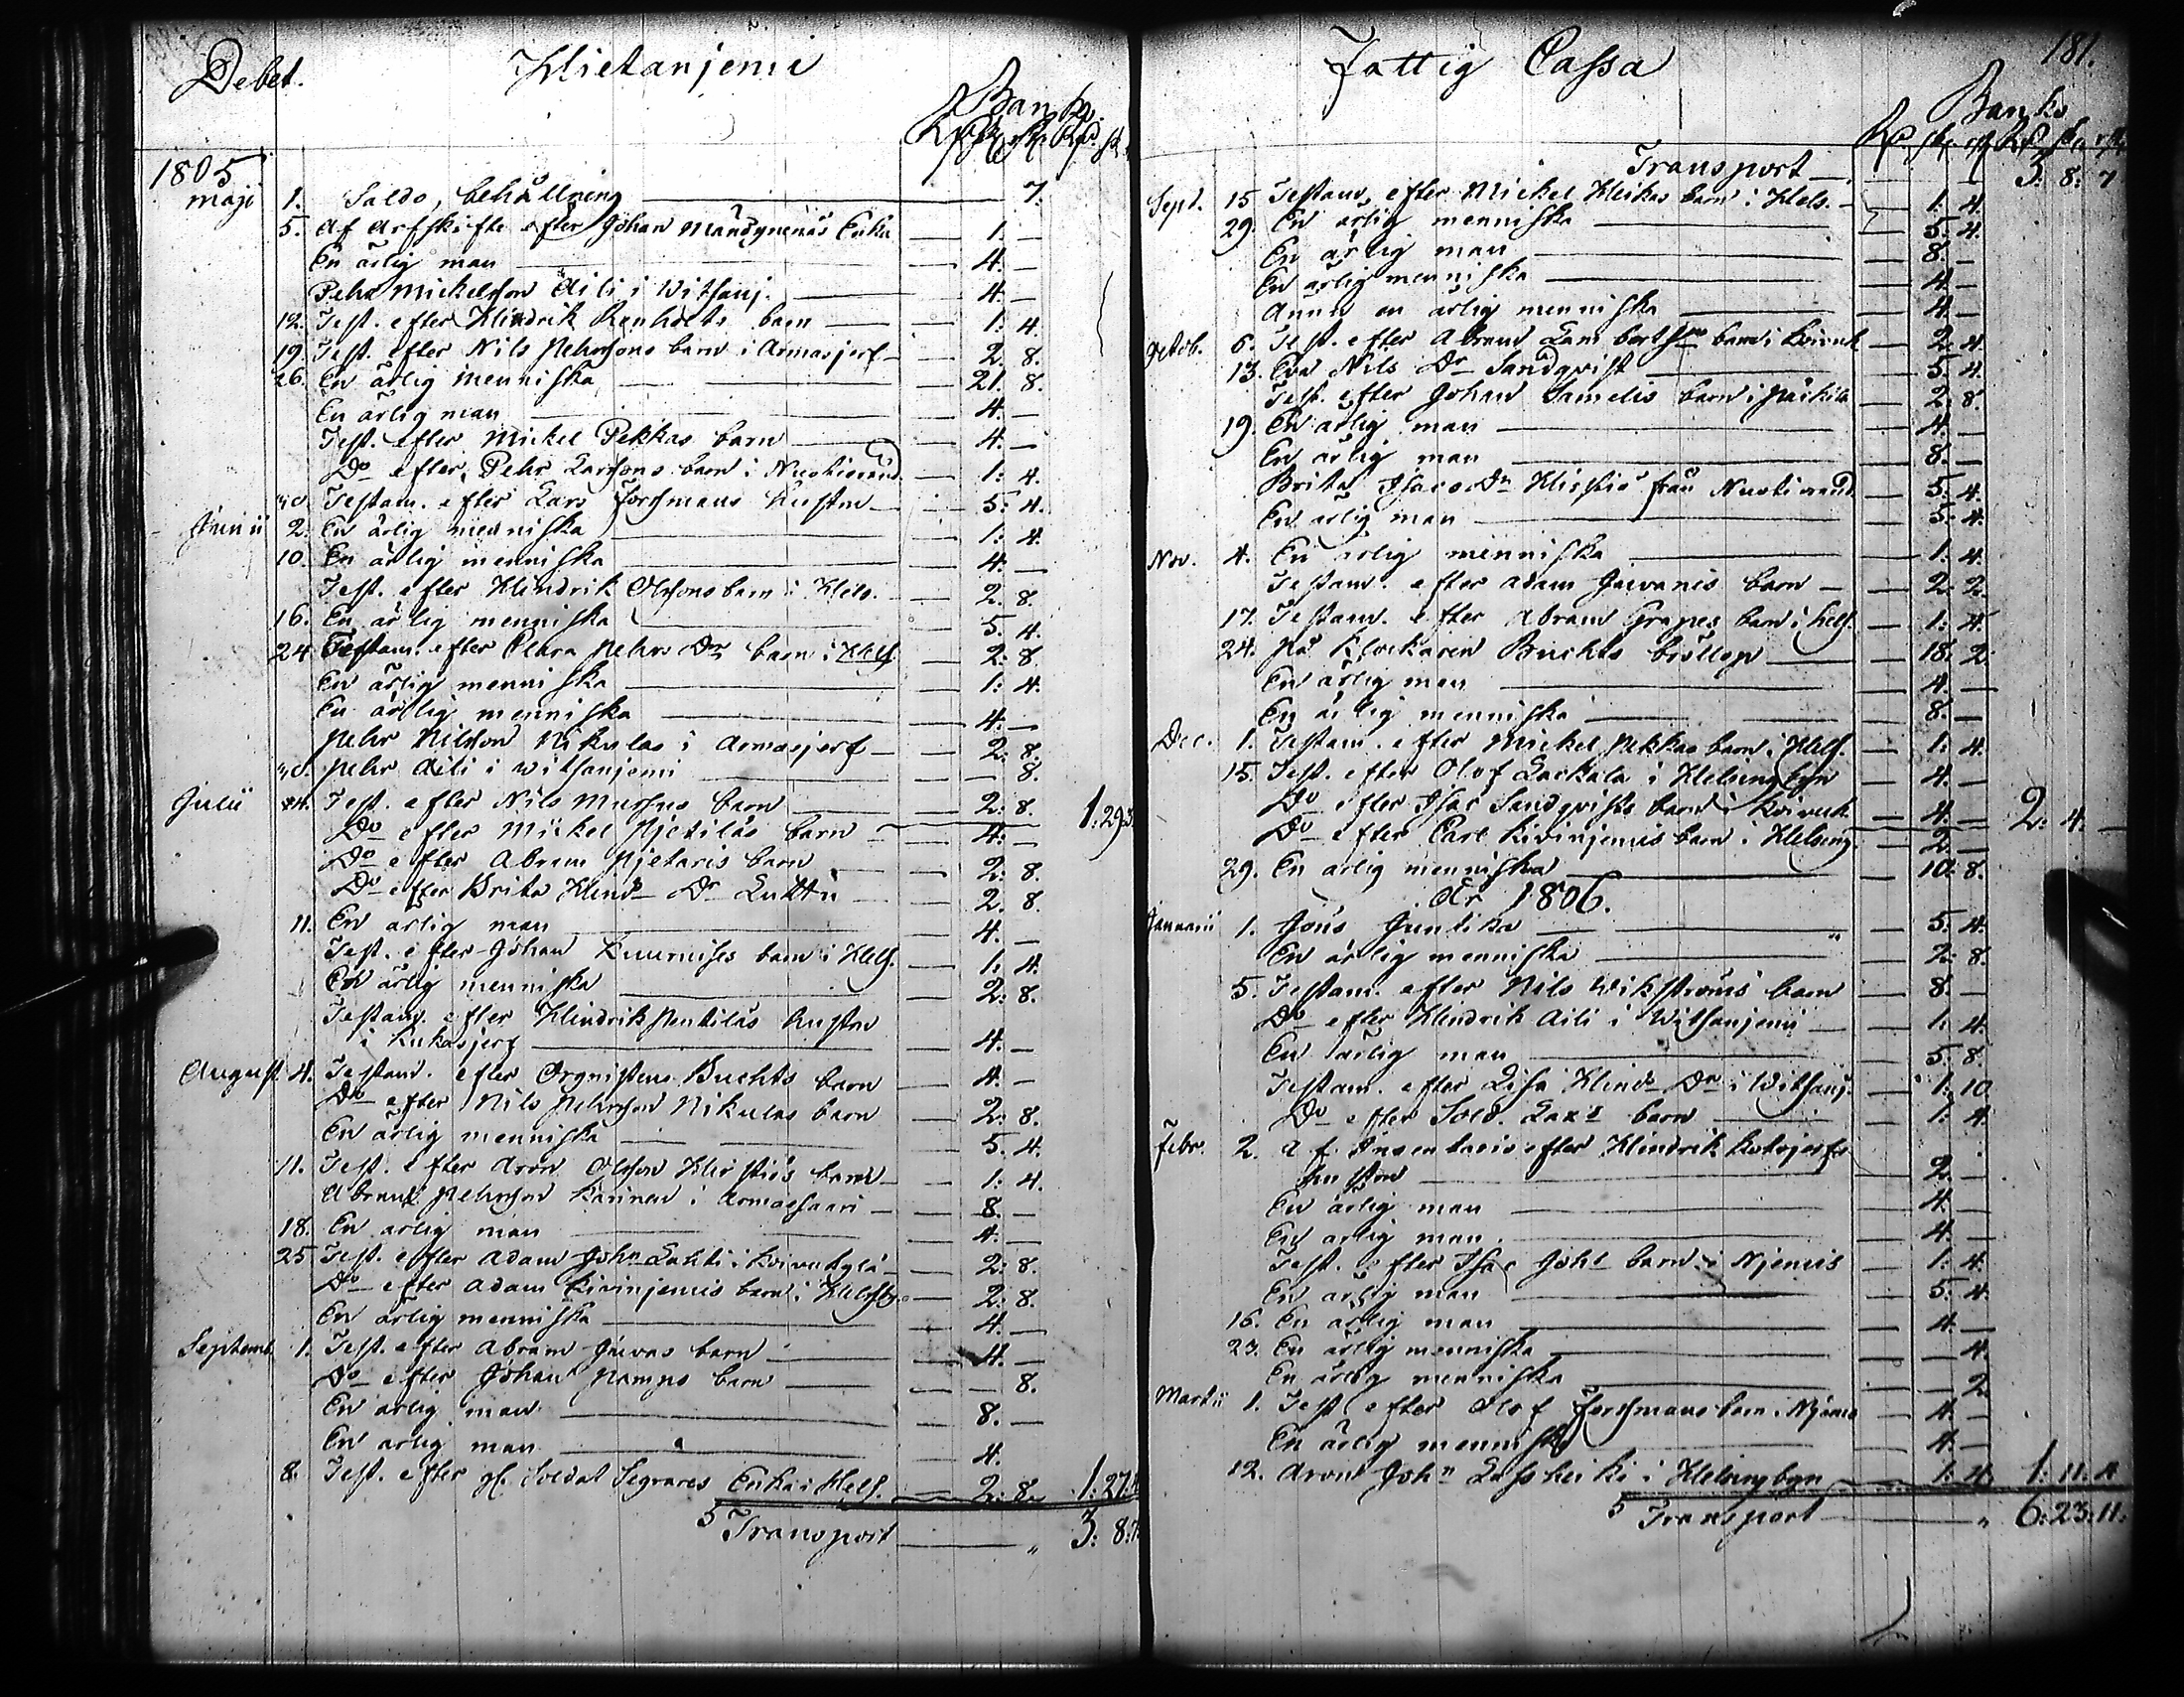 Debet. Hietaniemi
Banko
1805
Maji 1. Saldo, behållning 7.
5. Af Arfskifte efter Johan Mändynenäs Enka 1. —
En ärlig man 4. —
Pehr Mickelsson Aili i Witsanj. 4. —
12. Test. efter Hindrik Renholts barn 1: 4.
19. Test. efter Nils Pehrssons barn i Armasjerf 2. 8.
26. En ärlig menniska 21. 8.
En ärlig man 4. —
Test. efter Mickel Pekkas barn 4. —
Do efter Pehr Larssons barn i Nuotiorand 1: 4.
30. Testam. efter Lars Forssmans hustru 5: 4.
Junii 2. En ärlig menniska 1: 4.
10. En ärlig menniska 4. —
Test. efter Hindrik Olssons barn i Hels. 2. 8.
16. En ärlig menniska 5. 4.
24. Testam. efter Pehrs Dr barn i Hels. 2: 8.
En ärlig menniska 1: 4.
En ärlig menniska 4. —
Pehr Nilsson Nikulas i Armasjerf 2: 8.
30. Pehr Aili i Witsaniemi 8.
Julii 4. Test. efter Nils barn 2: 8. 1: 29: 3.
Do efter Mickel Pjetiläs barn 4. —
Do efter Abram Pjetaris barn 2: 8.
Do efter Brita Hind. Dr Luttu 2. 8.
11. En ärlig man 4. —
Test. efter Johan Kuurnises barn i Hels. 1: 4.
En ärlig menniska 2: 8.
Testam. efter Hindrik Pentiläs hustru
i Kukasjerf 4. —
August. 4. Testam. efter Orgnisten Buchts barn 4. —
Do efter Nils Pehrsson Nikulas barn 2: 8.
En ärlig menniska 5. 4.
11. Test. efter Aron Olsson Hirstiös barn 1: 4.
Abram Pehrsson Karinen i Armassaari 8. —
18. En ärlig man 4. —
25. Test. efter Adam John Lahti i Koivukylä 2: 8.
Do efter Adam Kiviniemis barn i Helsby. 2: 8.
En ärlig menniska 4. —
Septemb. 1. Test. efter Abram Juvas barn 4. —
Do efter Johan Pamps barn 8.
En ärlig man 8. —
En ärlig man 4.
8. Test. efter gl. Soldat Segrares Enka i Hels. 2: 8. 1: 27:
Transport 3: 8: 7.
Fattig Cassa 181.
Banko
Transport 3: 8: 7
Sept. 15. Testam. efter Mickel Heikas barn i Hels. 1: 4.
29. En ärlig menniska 5: 4.
En ärlig man 8. —
En ärlig menniska 4. —
Ännu en ärlig menniska 4. —
Octob. 6. Test. efter Abram Lambertssons barn i Koivuk. 2: 4.
13. Eva Nils Dr Sandqvist 5. 4.
Test. efter Johan Samelis barn i Päckilä 2: 8.
19. En ärlig man 4. —
En ärlig man 8. —
Brita Isacs Dr Hirstiö från Nuotiorand 5: 4.
En ärlig man 5: 4.
Nov. 4. En ärlig menniska 1: 4.
Testam. efter Adam Juvanis barn 2. 2.
17. Testam. efter Abram Grapes barn i Hels. 1: 4.
24. På Klockaren Buchts bröllop 18: 2.
En ärlig man 4. —
En ärlig menniska 8. —
Dec. 1. Testam. efter Mickel Pekkas barn i Hels. 1: 4.
15. Test. efter Olof Lackala i Helsingbyn 4. —
Do efter Isac Sandqvists barn i Koivuk. 4. — 2: 4. —
Do efter Carl Kiviniemis barn i Helsing. 2. —
29. En ärlig menniska 10: 8.
År 1806.
Januarii 1. Jöns Juntika 5: 4.
En ärlig menniska 2: 8.
5. Testam. efter Nils Wikströms barn 8. —
Do efter Hindrik Aili i Witsaniemi 1: 4.
En ärlig man 5: 8.
Testam. efter Lisa Hind. Dr i Witsanj. 1: 10
Do efter Sold. Lax's barn 1: 4.
Febr. 2. Af Inventarie efter Hindrik Kotojerfs
hustru 2. —
En ärlig man 4. —
En ärlig man 4. —
Test. efter Isac Johs barn i Njemis 1: 4.
En ärlig man 5: 4.
16. En ärlig man 4. —
23. En ärlig menniska 4.
En ärlig menniska 2
Martii 1. Test. efter Olof Forssmans barn i Njemis 4. —
En ärlig menniska 4. —
12. Arvid John Lassheiki i Helsingbyn 1: 4. 1: 11: 4
Transport 6: 23: 11.